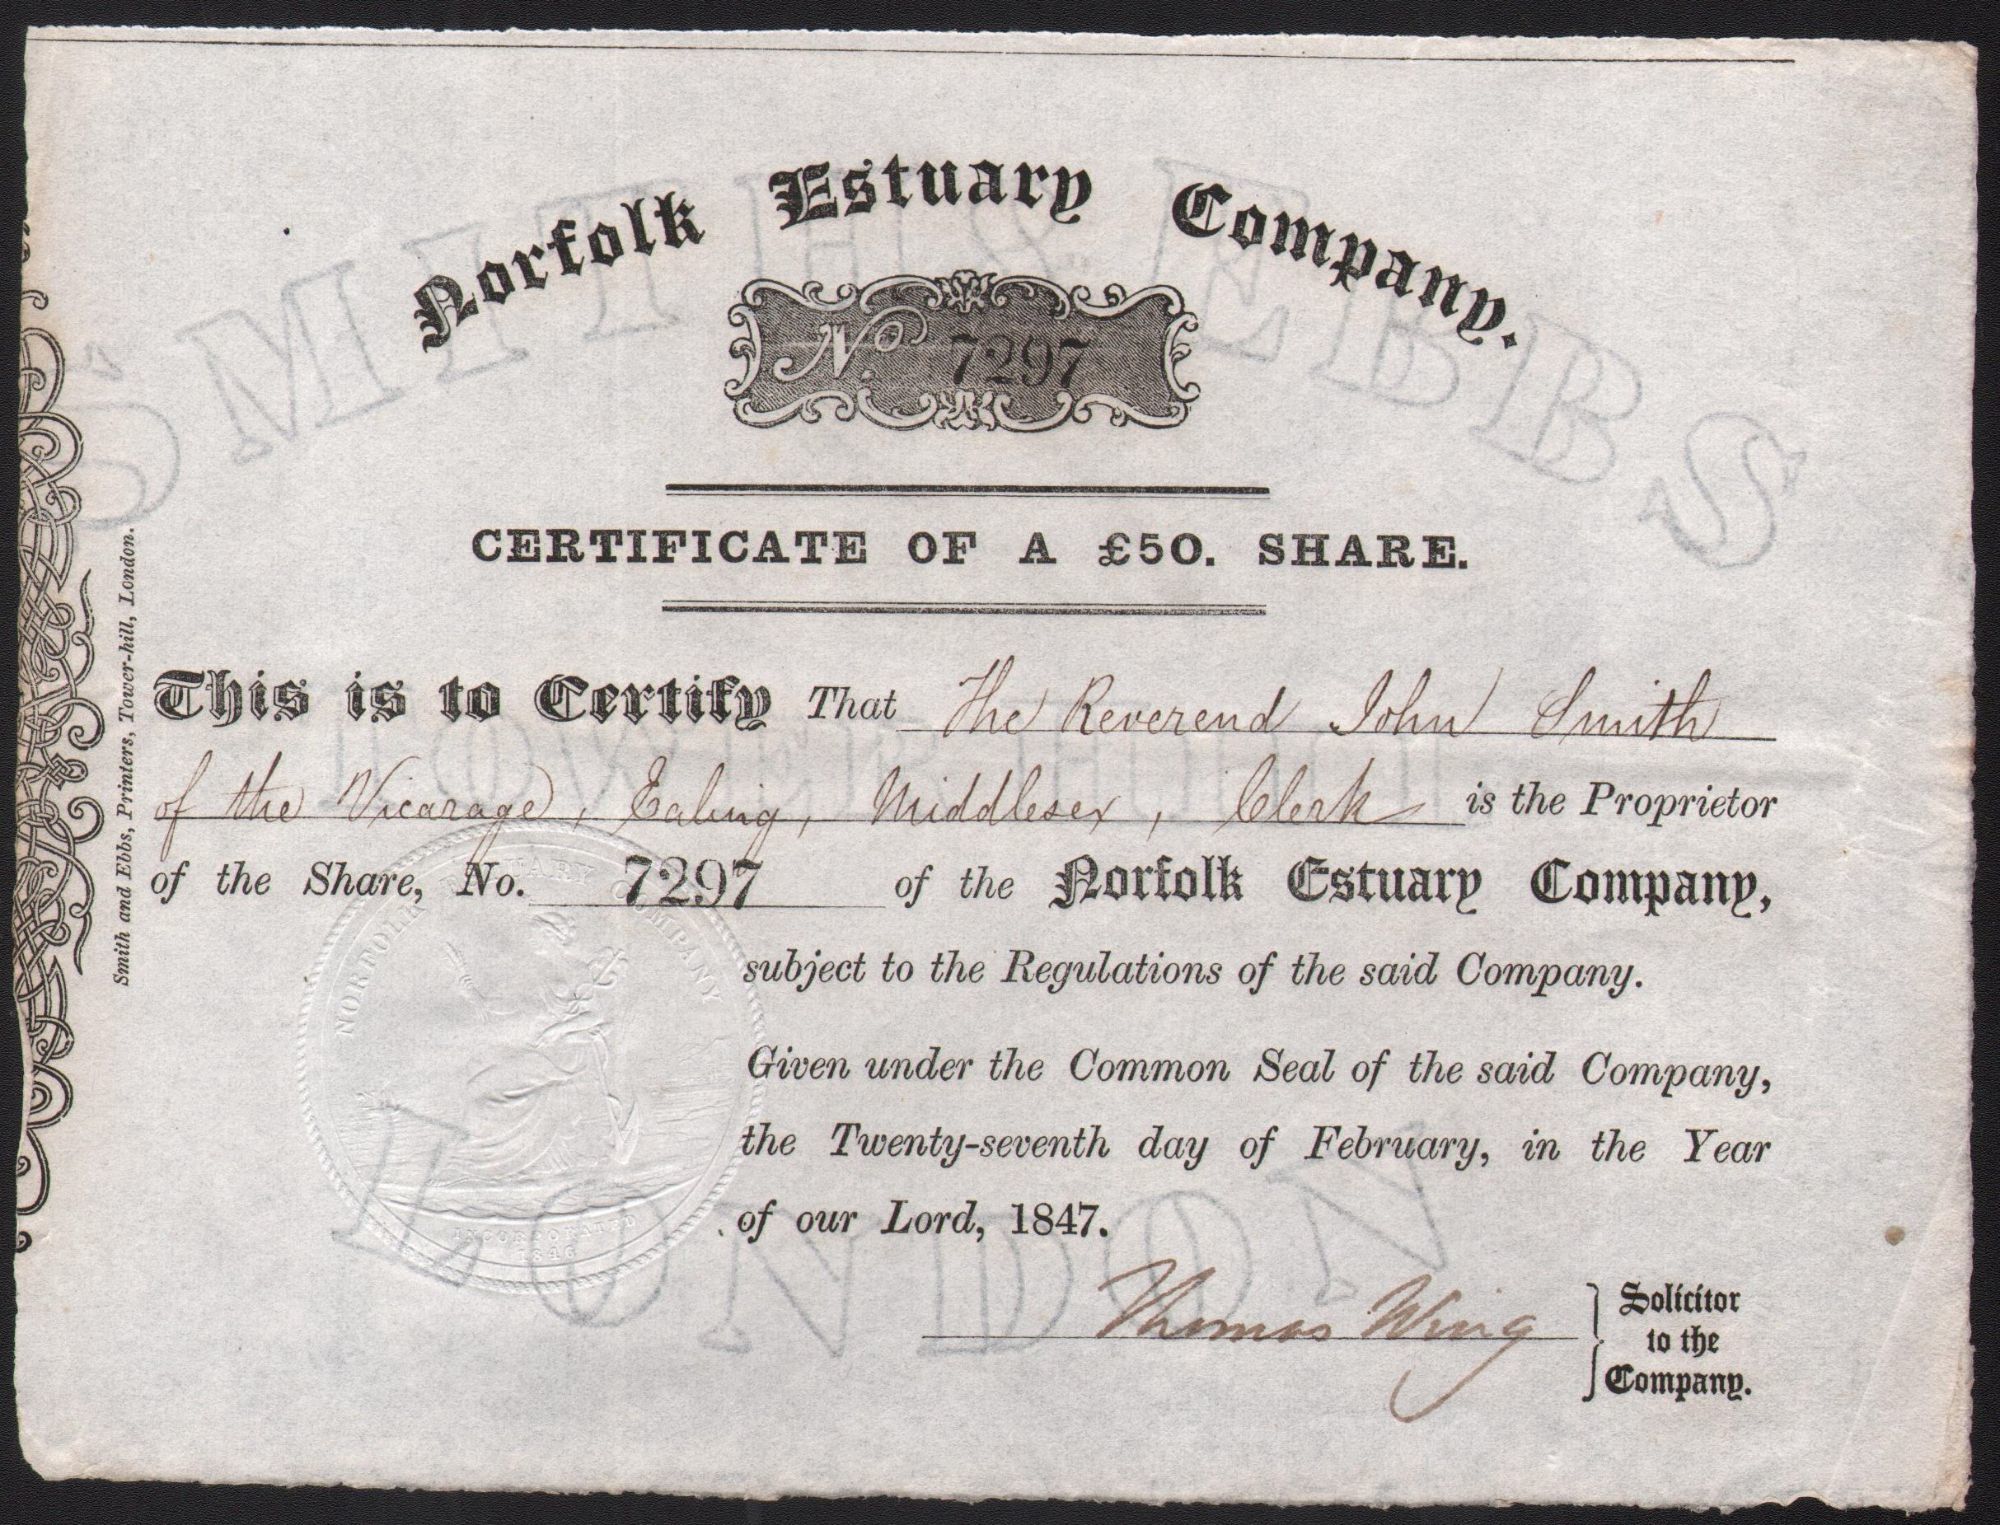 Norfolk Estuary Company.
No. 7297
CERTIFICATE OF A £50. SHARE.
This is to Certify That The Reverend John Smith
of the Vicarage, Ealing, Middlesex, Clerk is the Proprietor
of the Share, No. 7297 of the Norfolk Estuary Company,
subject to the Regulations of the said Company.
Given under the Common Seal of the said Company,
the Twenty-seventh day of February, in the Year
of our Lord, 1847.
Thomas Wing
Solicitor
to the
Company.
Smith and Ebbs, Printers, Tower-hill, London.
SMITH & EBBS
TOWER HILL
LONDON
NORFOLK ESTUARY COMPANY
INCORPORATED
1846